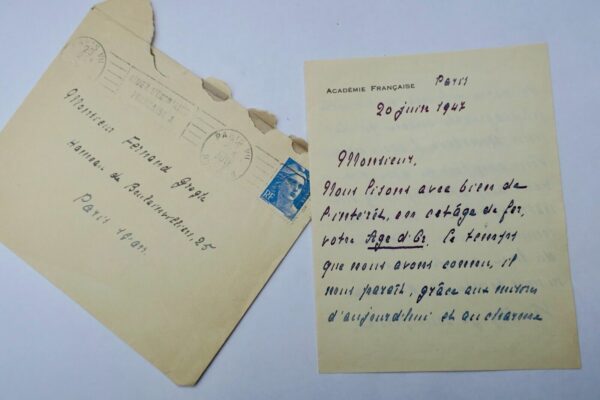 Monsieur Fernand Gregh
Hameau de Boulainvilliers, 25
Paris 16e
PARIS
RF
ACADÉMIE FRANÇAISE Paris
20 juin 1947
Monsieur,
Nous lisons avec bien de
l'intérêt, en cet âge de fer,
votre Age d'Or. Ce temps
que nous avons connu, il
nous paraît, grâce aux
d'aujourd'hui et au charme